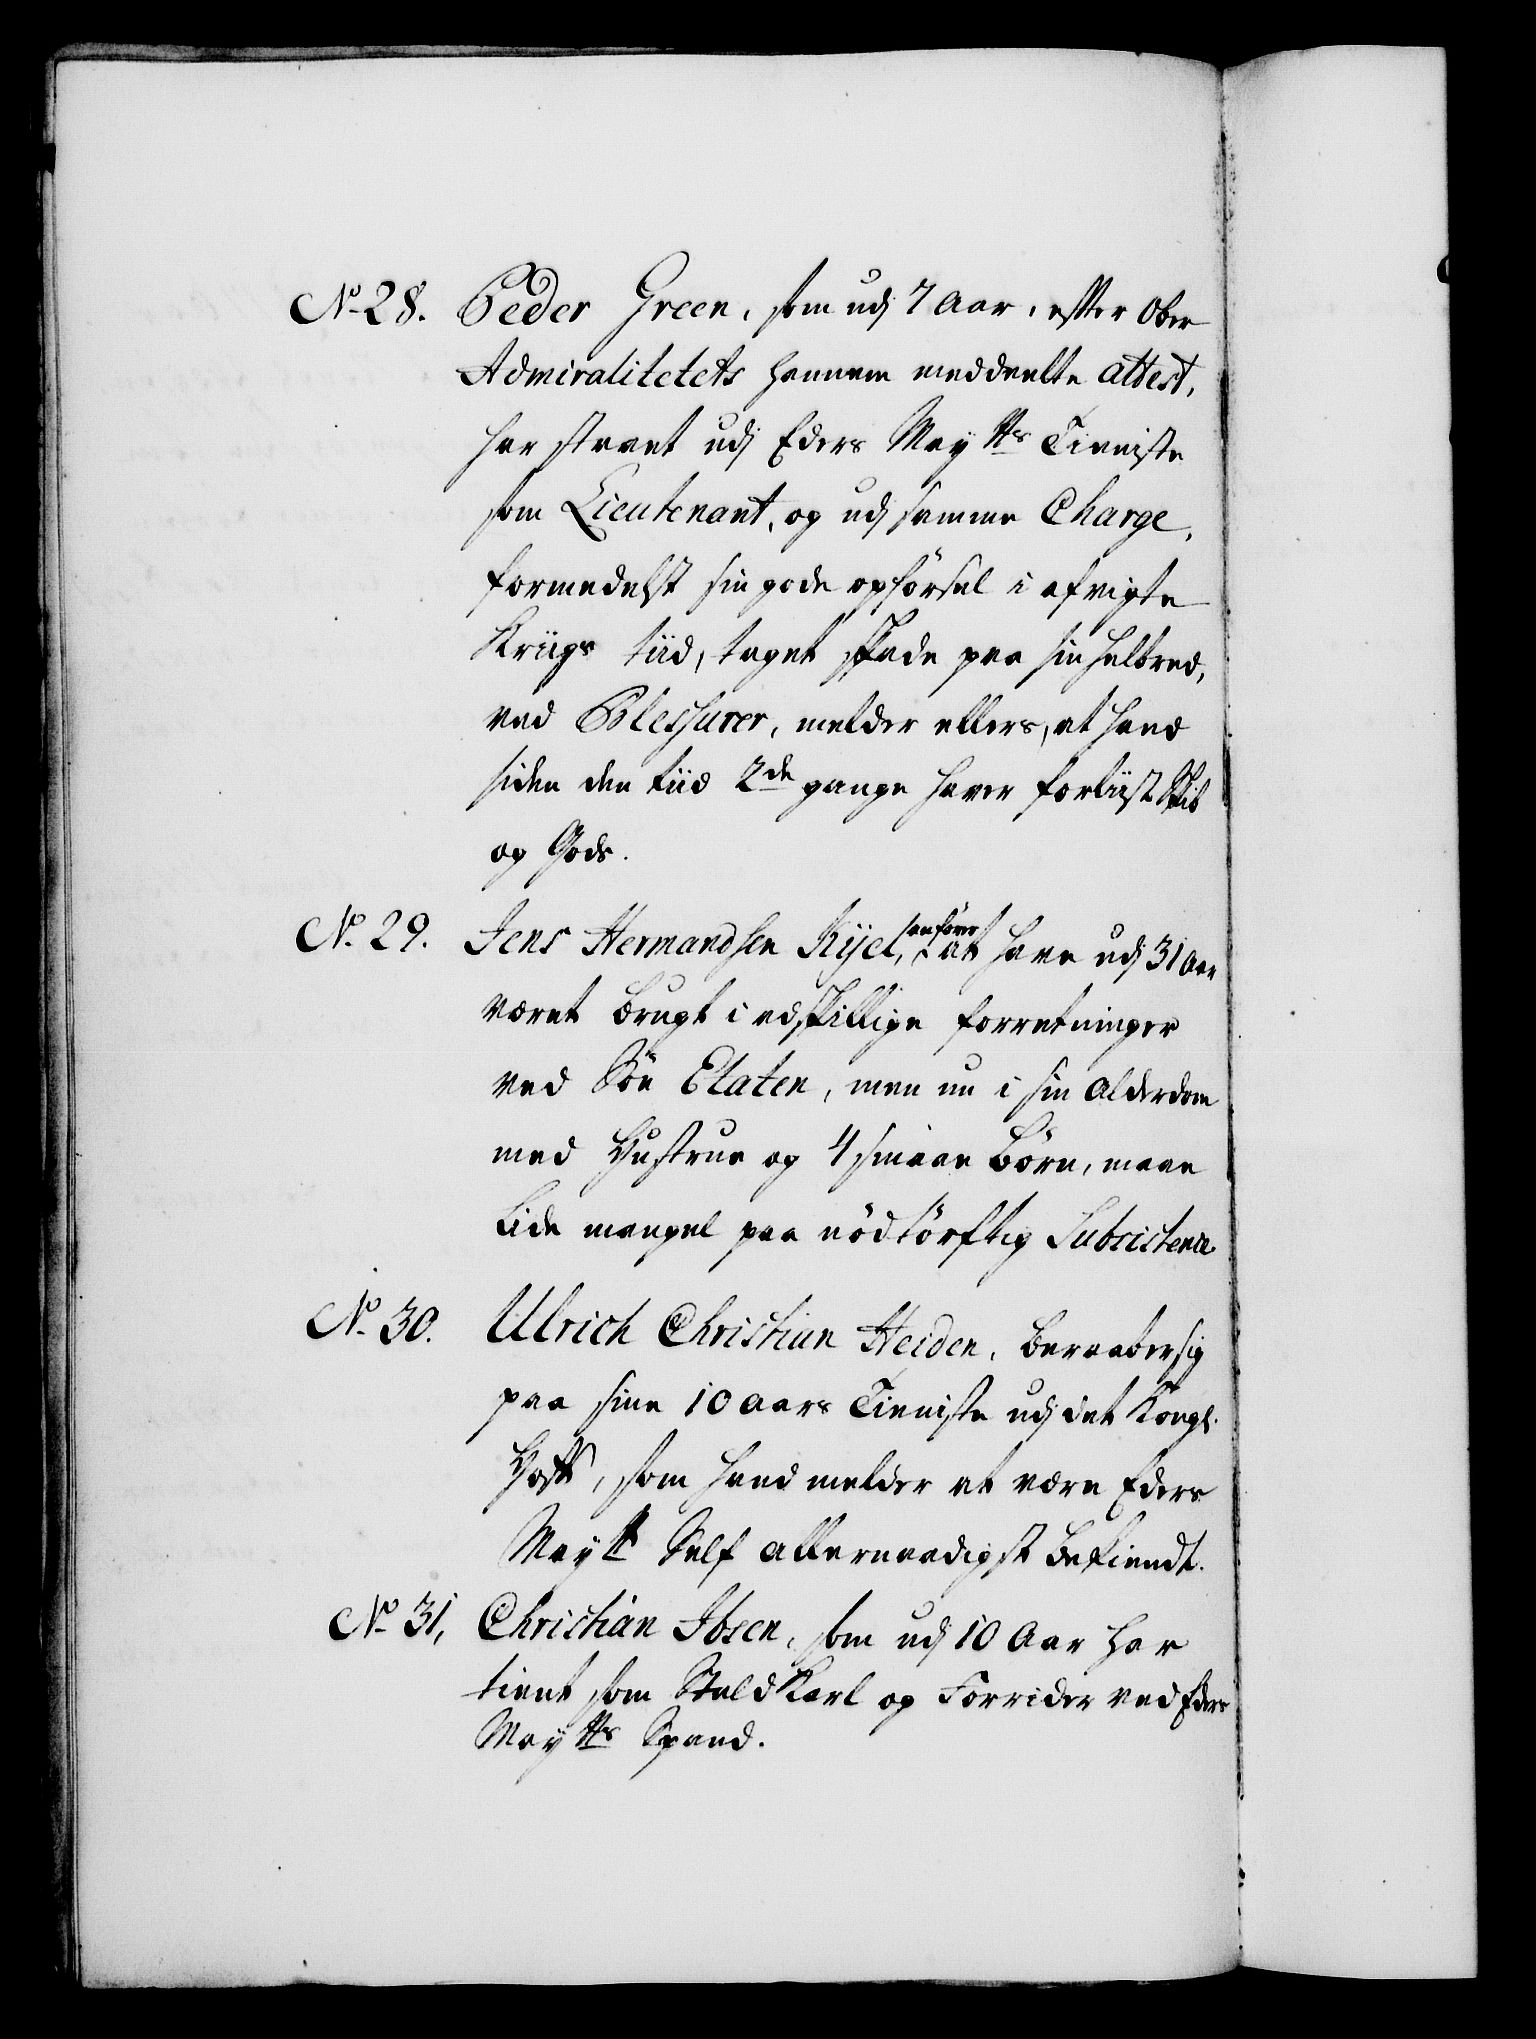 No 28. Peder Green, som udj 7 Aar, efter Ober
Admiralitetets hannem meddeelte attest,
har staaet udj Eders May:tts Tieniste
som Lieutenant, og udj samme Charge,
formedelst sin gode opförsel i afvigte
Kriigs tiid, taget skade paa sin Helbred,
ved Blessurer, melder ellers, at hand
siden den tiid 2de gange haver forliist Skib
og Gods.
No. 29. Jens Hermandsen Kyel, anförer at have udj 31 Aar
været brugt i adskillige forretninger
ved Söe Etaten, men nu i sin Alderdom
med Hustrue og 4 smaae Börn, maae
Lide mangel paa nödtörftig Subsistence
No. 30. Ulrich Christian Heiden, beraaber sig
paa sine 10 aars Tieniste udj det Kongl.
Hoff, som hand melder at være Eders
Maytt Self allernaadigst bekiendt.
No 31, Christian Ibsen, som udj 10 Aar har
tient som Stald Karl og Forrider ved Eders
Maytts Spand.